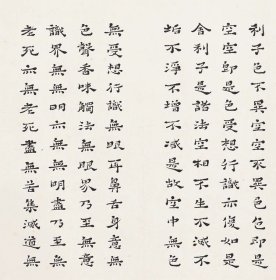 利子色不異空空不異色色即是
空空即是色受想行識亦復如是
舍利子是諸法空相不生不滅不
垢不淨不增不減是故空中無色
無受想行識無眼耳鼻舌身意無
色聲香味觸法無眼界乃至無意
識界無無明亦無無明盡乃至無
老死亦無老死盡無苦集滅道無